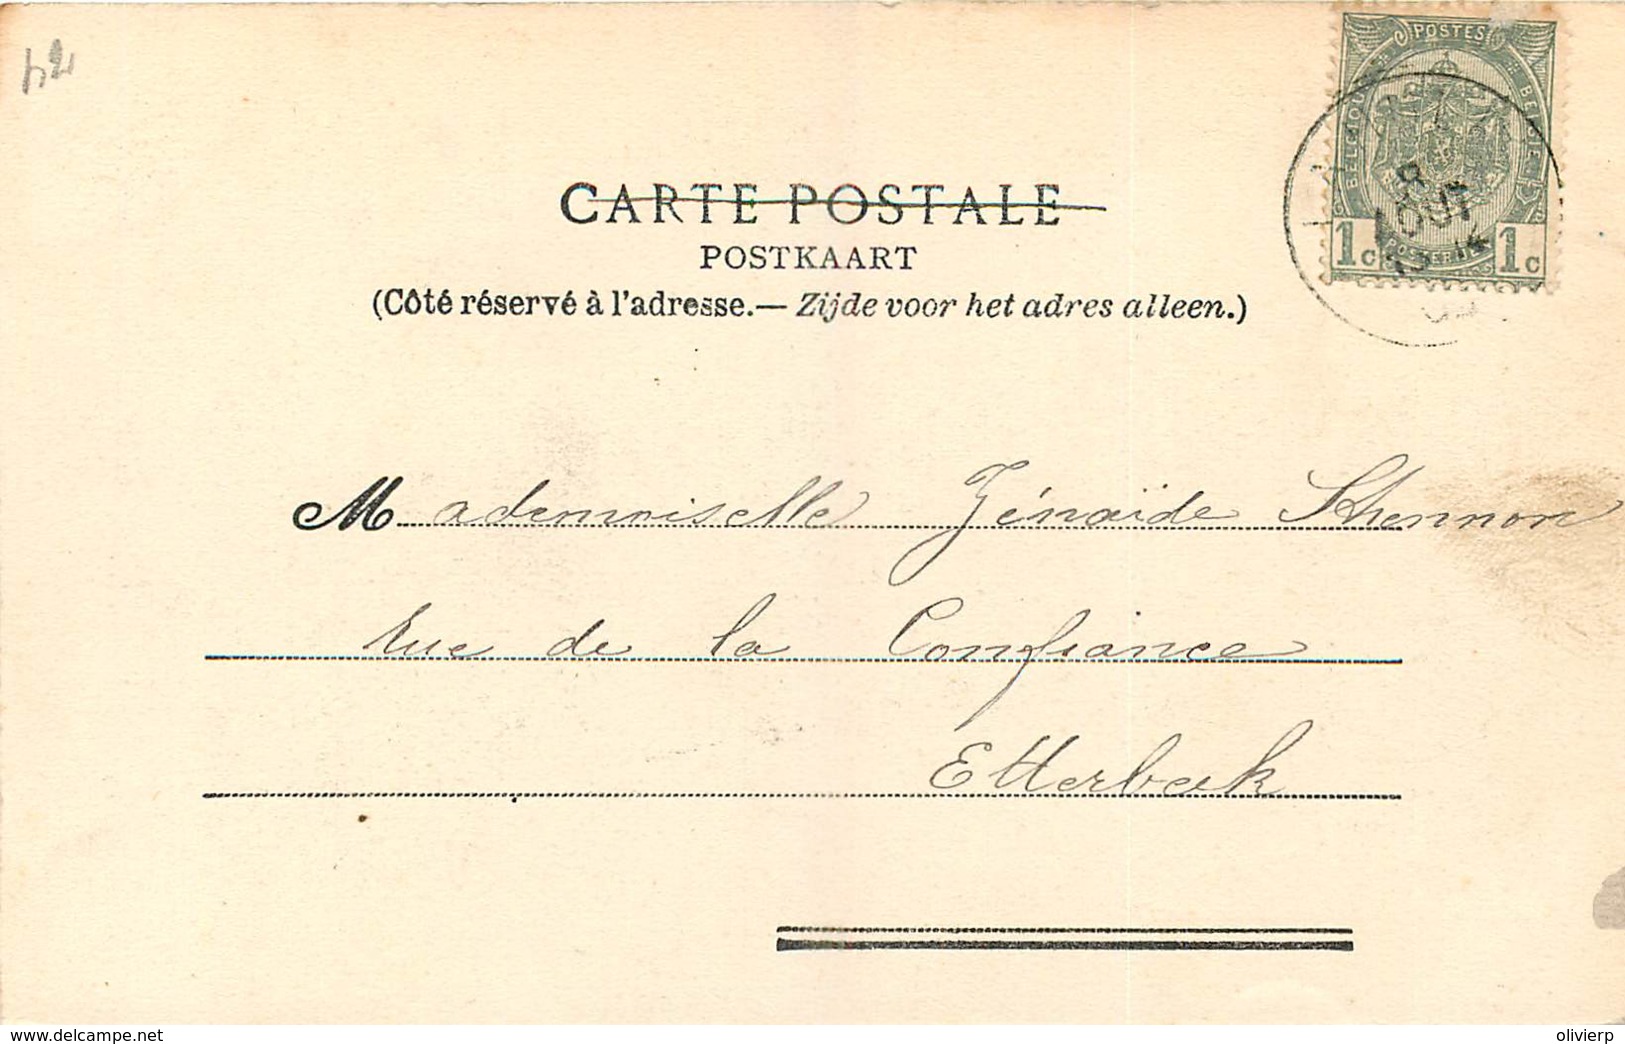 POSTES
BELGIQUE BELGIË
1c 1c
8
AOUT
CARTE POSTALE
POSTKAART
(Côté réservé à l'adresse.— Zijde voor het adres alleen.)
Mademoiselle Zénaïde
rue de la Confiance
Etterbeek
www.delcampe.net
olivierp